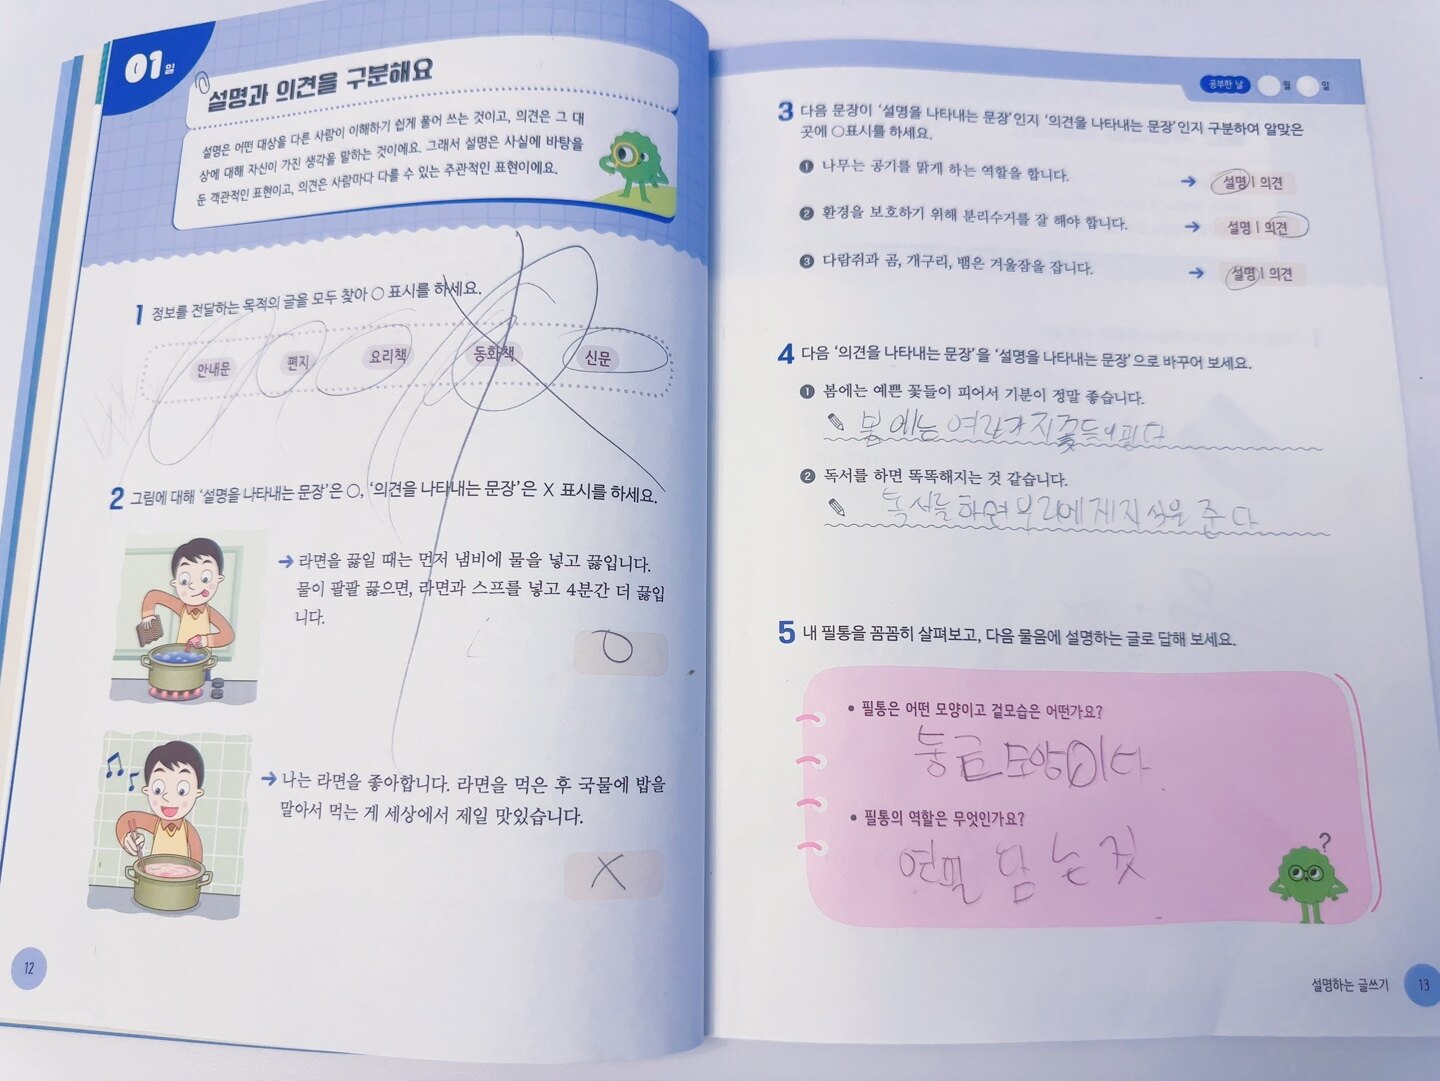 01일
설명과 의견을 구분해요
설명은 어떤 대상을 다른 사람이 이해하기 쉽게 풀어 쓰는 것이고, 의견은 그 대
상에 대해 자신이 가진 생각을 말하는 것이에요. 그래서 설명은 사실에 바탕을
둔 객관적인 표현이고, 의견은 사람마다 다를 수 있는 주관적인 표현이에요.
1 정보를 전달하는 목적의 글을 모두 찾아 ○ 표시를 하세요.
안내문 편지 요리책 동화책 신문
2 그림에 대해 '설명을 나타내는 문장'은 ○, '의견을 나타내는 문장'은 X 표시를 하세요.
→ 라면을 끓일 때는 먼저 냄비에 물을 넣고 끓입니다.
물이 팔팔 끓으면, 라면과 스프를 넣고 4분간 더 끓입
니다.
○
→ 나는 라면을 좋아합니다. 라면을 먹은 후 국물에 밥을
말아서 먹는 게 세상에서 제일 맛있습니다.
X
12
공부한 날 월 일
3 다음 문장이 '설명을 나타내는 문장'인지 '의견을 나타내는 문장'인지 구분하여 알맞은
곳에 ○표시를 하세요.
❶ 나무는 공기를 맑게 하는 역할을 합니다. → 설명 | 의견
❷ 환경을 보호하기 위해 분리수거를 잘 해야 합니다. → 설명 | 의견
❸ 다람쥐과 곰, 개구리, 뱀은 겨울잠을 잡니다. → 설명 | 의견
4 다음 '의견을 나타내는 문장'을 '설명을 나타내는 문장'으로 바꾸어 보세요.
❶ 봄에는 예쁜 꽃들이 피어서 기분이 정말 좋습니다.
봄에는 여러가지 꽃들이 핀다
❷ 독서를 하면 똑똑해지는 것 같습니다.
독서를 하면 우리에게 지식을 준다
5 내 필통을 꼼꼼히 살펴보고, 다음 물음에 설명하는 글로 답해 보세요.
• 필통은 어떤 모양이고 겉모습은 어떤가요?
모양이다
• 필통의 역할은 무엇인가요?
연필 담는 것
?
설명하는 글쓰기 13